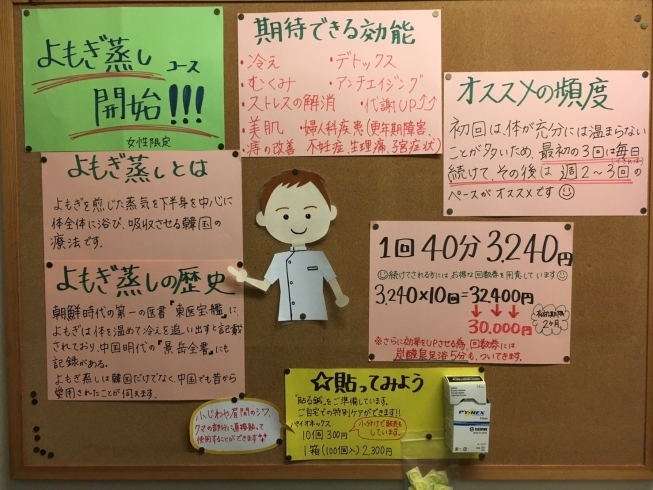 よもぎ蒸し
コース
開始!!!
女性限定
期待できる効能
・冷え ・デトックス
・むくみ ・アンチエイジング
・ストレスの解消 ・代謝UP↑↑
・美肌 ・婦人科疾患(更年期障害、
・痔の改善 不妊症、生理痛、子宮症状)
オススメの頻度
初回は、体が充分には温まらない
ことが多いため、最初の3回は毎日
続けて、その後は週2~3回の
ペースがオススメです☺
よもぎ蒸しとは
よもぎを煎じた蒸気を下半身を中心に
体全体に浴び、吸収させる韓国の
療法です。
よもぎ蒸しの歴史
朝鮮時代の第一の医書『東医宝鑑』に、
よもぎは体を温めて冷えを追い出すと記載
されており、中国明代の『景岳全書』にも
記録がある。
よもぎ蒸しは韓国だけでなく、中国でも昔から
愛用されたことが伺えます。
1回40分 3,240円
☺続けてされる方にはお得な回数券を用意しています☺
3,240×10回=32,400円
↓↓↓
30,000円
有効期限
2ヶ月
※さらに効果をUPさせる為、回数券には
炭酸泉足浴5分も、ついてきます。
☆貼ってみよう
"貼る鍼"をご準備しています。
ご自宅での特別ケアができます!!
パイオネックス
10個 300円
小分けで販売も
しています。
1箱(100個入) 2,300円
小じわや眉間のシワ、
クマの部分に直接貼って
使用することができます
PYONEX